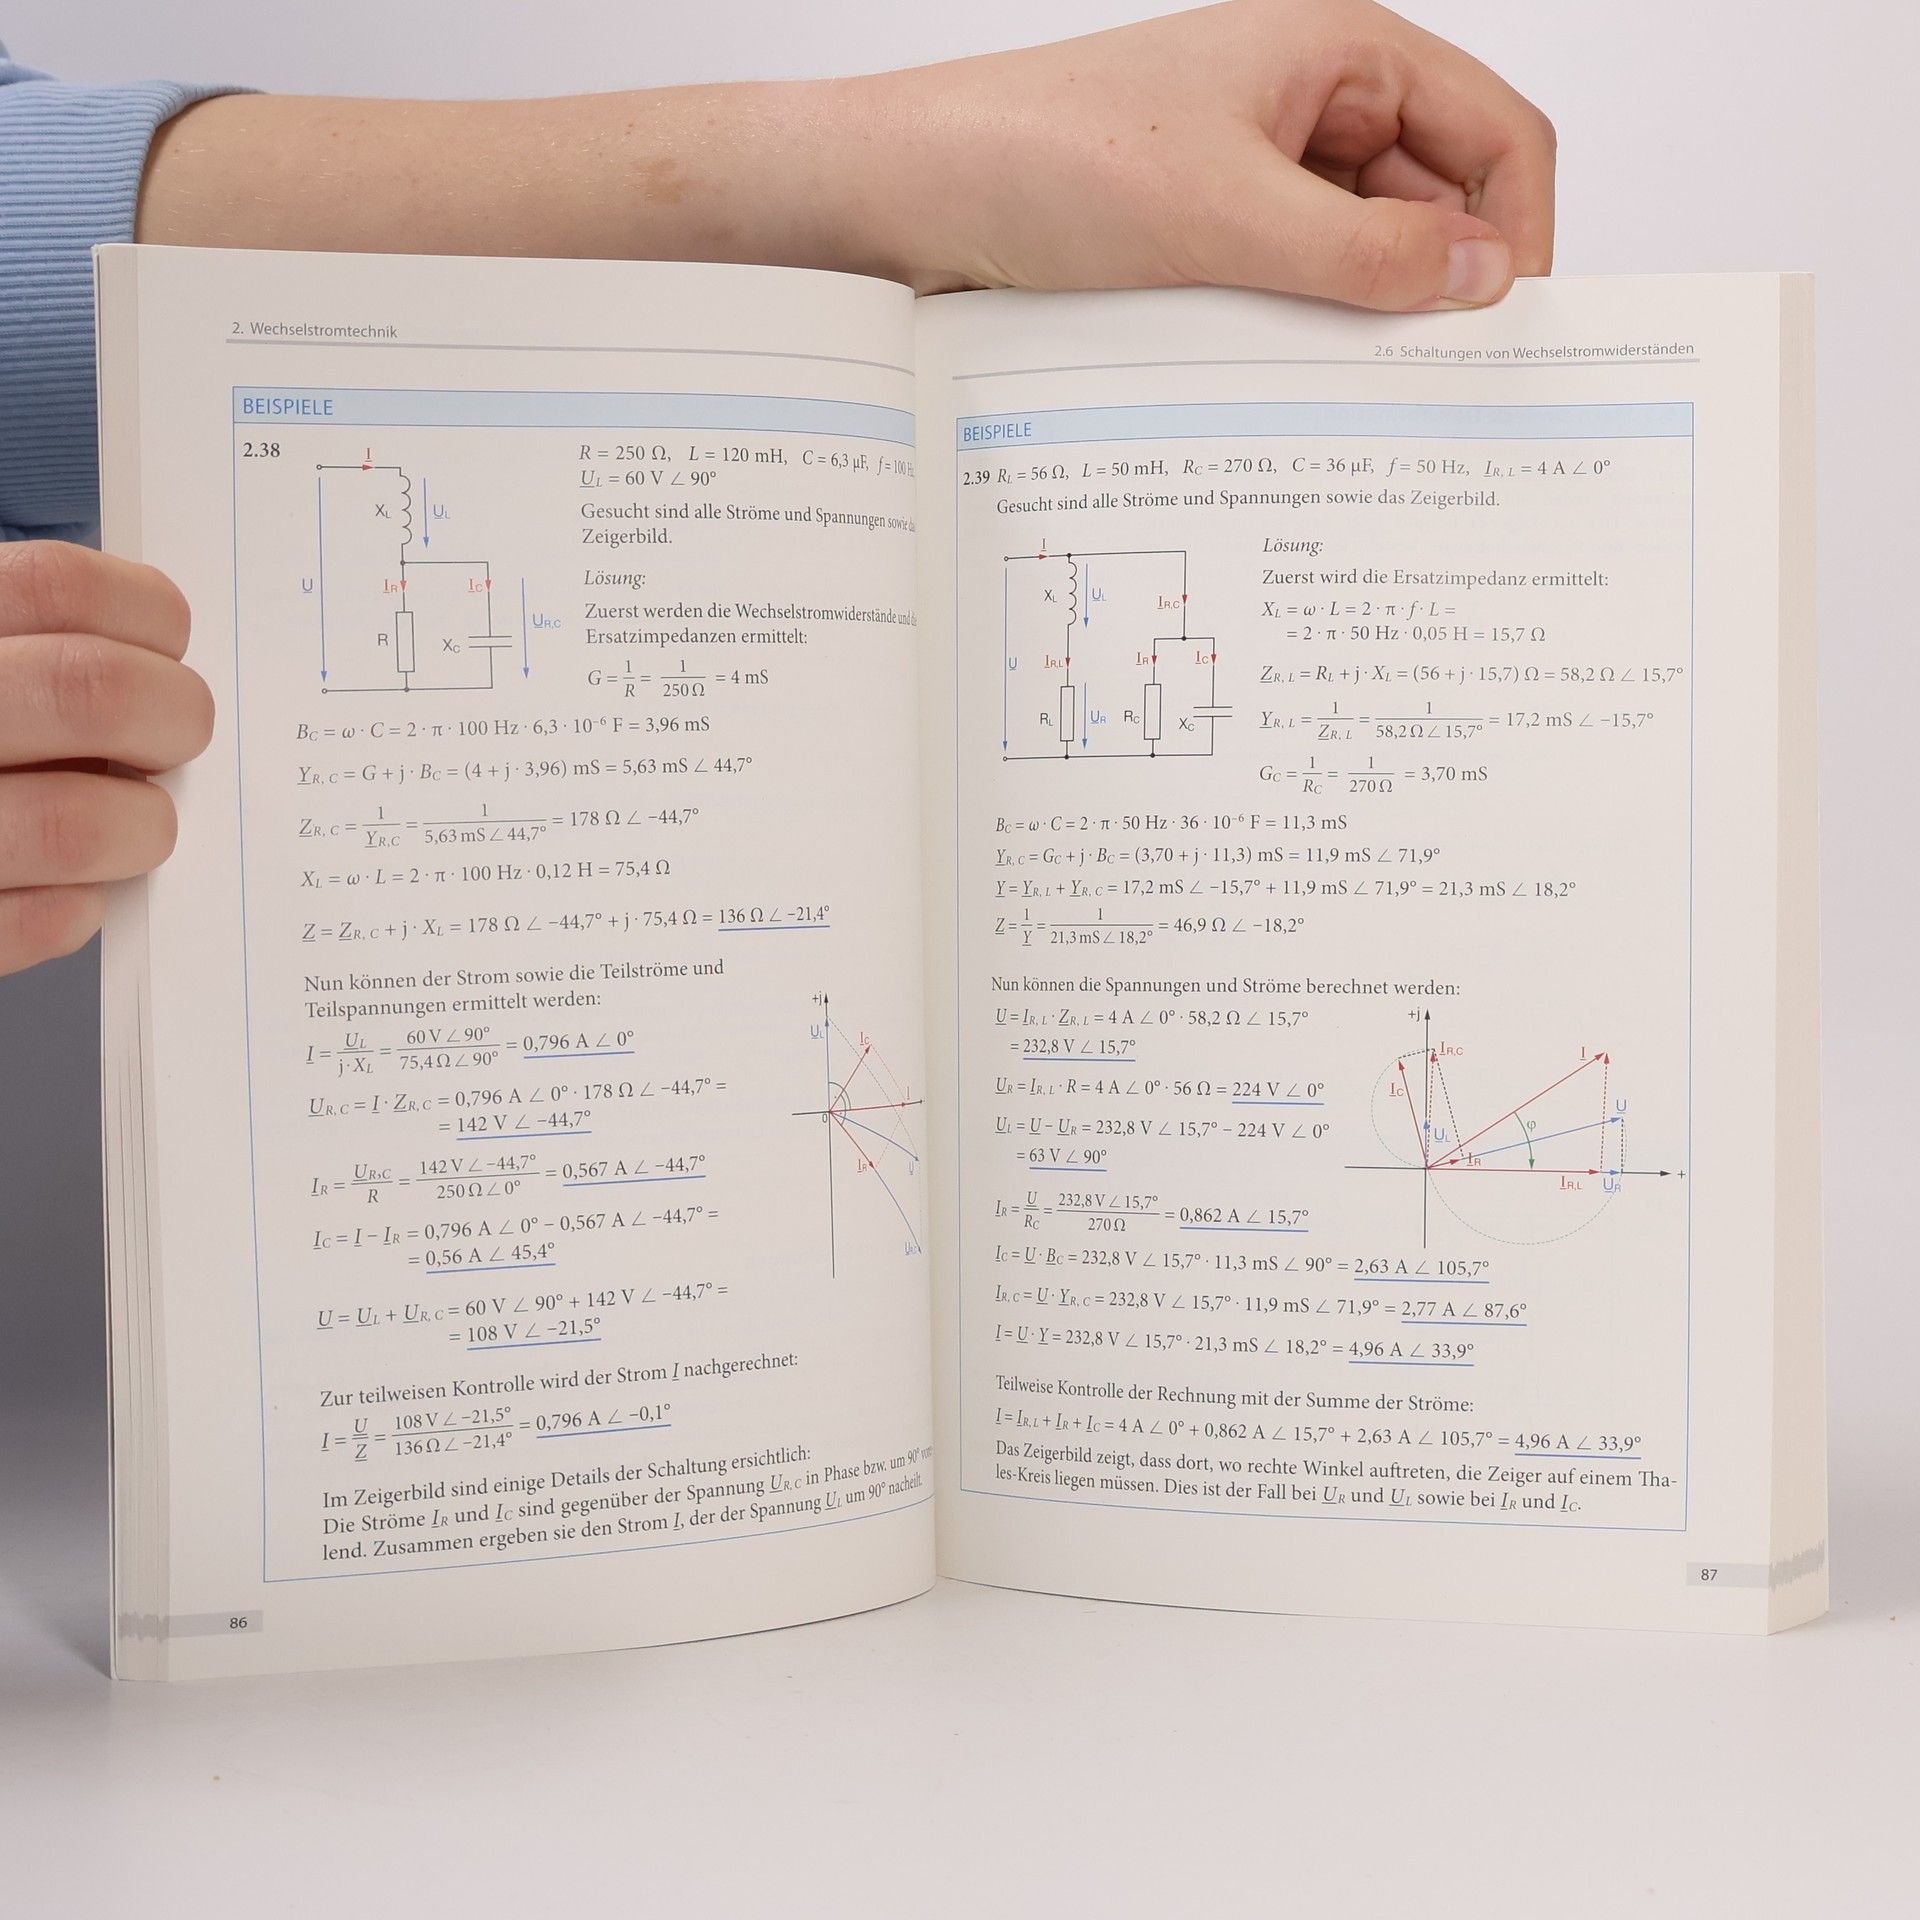 2. Wechselstromtechnik
BEISPIELE
2.38
R = 250 Ω, L = 120 mH, C = 6,3 µF, f = 100 Hz
U̲L = 60 V ∠ 90°
Gesucht sind alle Ströme und Spannungen sowie
Zeigerbild.
Lösung:
Zuerst werden die Wechselstromwiderstände und
Ersatzimpedanzen ermittelt:
I̲
XL
U̲L
U̲
I̲R
I̲C
R
XC
U̲R,C
G = 1/R = 1/250 Ω = 4 mS
BC = ω · C = 2 · π · 100 Hz · 6,3 · 10⁻⁶ F = 3,96 mS
Y̲R, C = G + j · BC = (4 + j · 3,96) mS = 5,63 mS ∠ 44,7°
Z̲R, C = 1/Y̲R,C = 1/5,63 mS ∠ 44,7° = 178 Ω ∠ −44,7°
XL = ω · L = 2 · π · 100 Hz · 0,12 H = 75,4 Ω
Z̲ = Z̲R, C + j · XL = 178 Ω ∠ −44,7° + j · 75,4 Ω = 136 Ω ∠ −21,4°
Nun können der Strom sowie die Teilströme und
Teilspannungen ermittelt werden:
I̲ = U̲L/j · XL = 60 V ∠ 90°/75,4 Ω ∠ 90° = 0,796 A ∠ 0°
U̲R, C = I̲ · Z̲R, C = 0,796 A ∠ 0° · 178 Ω ∠ −44,7° =
= 142 V ∠ −44,7°
I̲R = U̲R,C/R = 142 V ∠ −44,7°/250 Ω ∠ 0° = 0,567 A ∠ −44,7°
I̲C = I̲ − I̲R = 0,796 A ∠ 0° − 0,567 A ∠ −44,7° =
= 0,56 A ∠ 45,4°
U̲ = U̲L + U̲R, C = 60 V ∠ 90° + 142 V ∠ −44,7° =
= 108 V ∠ −21,5°
+j
U̲L
I̲C
I̲
0
I̲R
U̲
Zur teilweisen Kontrolle wird der Strom I̲ nachgerechnet:
I̲ = U̲/Z̲ = 108 V ∠ −21,5°/136 Ω ∠ −21,4° = 0,796 A ∠ −0,1°
Im Zeigerbild sind einige Details der Schaltung ersichtlich:
Die Ströme I̲R und I̲C sind gegenüber der Spannung U̲R, C in Phase bzw. um 90°
lend. Zusammen ergeben sie den Strom I̲, der der Spannung U̲L um 90° nacheilt.
86
2.6 Schaltungen von Wechselstromwiderständen
BEISPIELE
2.39 RL = 56 Ω, L = 50 mH, RC = 270 Ω, C = 36 µF, f = 50 Hz, I̲R, L = 4 A ∠ 0°
Gesucht sind alle Ströme und Spannungen sowie das Zeigerbild.
I̲
XL
U̲L
I̲R,C
U̲
I̲R,L
I̲R
I̲C
RL
U̲R
RC
XC
Lösung:
Zuerst wird die Ersatzimpedanz ermittelt:
XL = ω · L = 2 · π · f · L =
= 2 · π · 50 Hz · 0,05 H = 15,7 Ω
Z̲R, L = RL + j · XL = (56 + j · 15,7) Ω = 58,2 Ω ∠ 15,7°
Y̲R, L = 1/Z̲R, L = 1/58,2 Ω ∠ 15,7° = 17,2 mS ∠ −15,7°
GC = 1/RC = 1/270 Ω = 3,70 mS
BC = ω · C = 2 · π · 50 Hz · 36 · 10⁻⁶ F = 11,3 mS
Y̲R, C = GC + j · BC = (3,70 + j · 11,3) mS = 11,9 mS ∠ 71,9°
Y̲ = Y̲R, L + Y̲R, C = 17,2 mS ∠ −15,7° + 11,9 mS ∠ 71,9° = 21,3 mS ∠ 18,2°
Z̲ = 1/Y̲ = 1/21,3 mS ∠ 18,2° = 46,9 Ω ∠ −18,2°
Nun können die Spannungen und Ströme berechnet werden:
U̲ = I̲R, L · Z̲R, L = 4 A ∠ 0° · 58,2 Ω ∠ 15,7°
= 232,8 V ∠ 15,7°
U̲R = I̲R, L · R = 4 A ∠ 0° · 56 Ω = 224 V ∠ 0°
U̲L = U̲ − U̲R = 232,8 V ∠ 15,7° − 224 V ∠ 0°
= 63 V ∠ 90°
I̲R = U̲/RC = 232,8 V ∠ 15,7°/270 Ω = 0,862 A ∠ 15,7°
+j
I̲R,C
I̲
I̲C
U̲
U̲L
φ
I̲R
I̲R,L
U̲R
+
I̲C = U̲ · B̲C = 232,8 V ∠ 15,7° · 11,3 mS ∠ 90° = 2,63 A ∠ 105,7°
I̲R, C = U̲ · Y̲R, C = 232,8 V ∠ 15,7° · 11,9 mS ∠ 71,9° = 2,77 A ∠ 87,6°
I̲ = U̲ · Y̲ = 232,8 V ∠ 15,7° · 21,3 mS ∠ 18,2° = 4,96 A ∠ 33,9°
Teilweise Kontrolle der Rechnung mit der Summe der Ströme:
I̲ = I̲R, L + I̲R + I̲C = 4 A ∠ 0° + 0,862 A ∠ 15,7° + 2,63 A ∠ 105,7° = 4,96 A ∠ 33,9°
Das Zeigerbild zeigt, dass dort, wo rechte Winkel auftreten, die Zeiger auf einem Tha-
les-Kreis liegen müssen. Dies ist der Fall bei U̲R und U̲L sowie bei I̲R und I̲C.
87